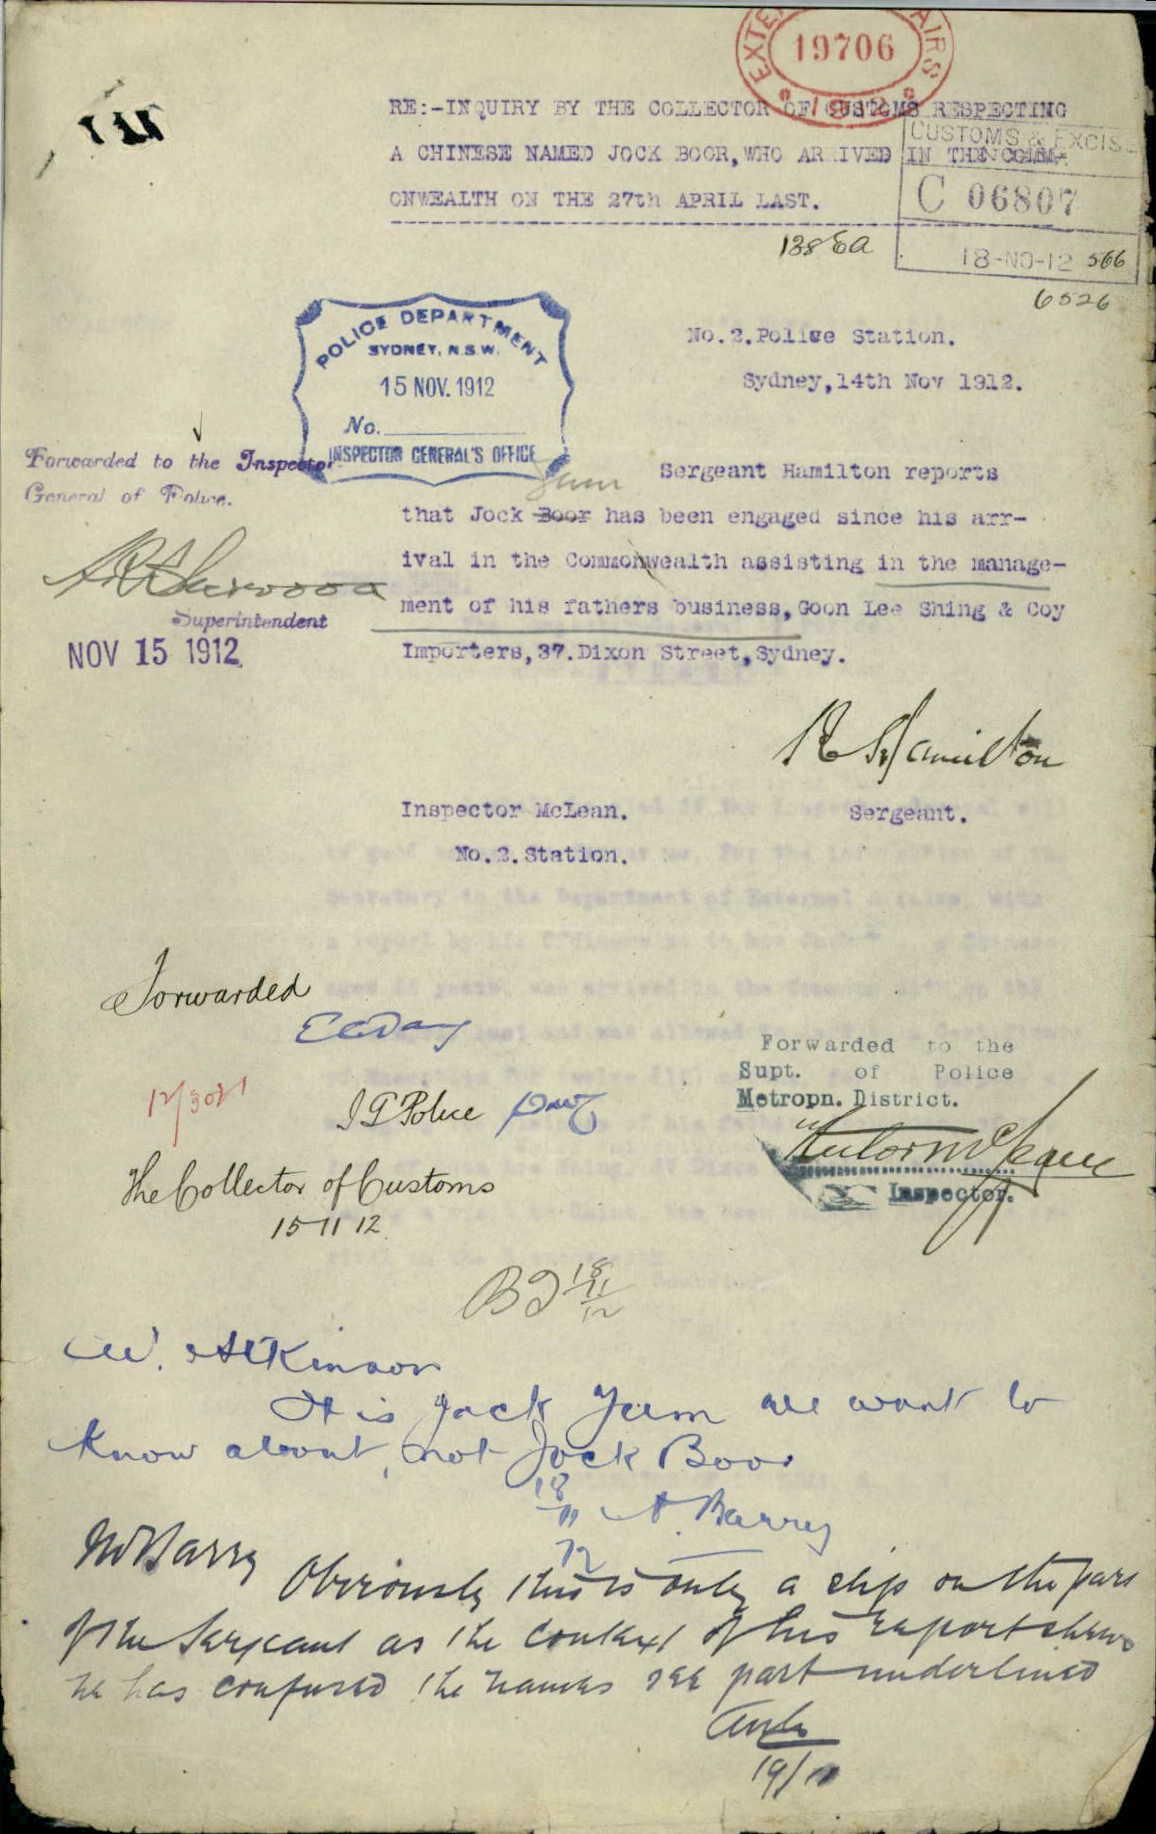 EXTE AIRS
19706
1912
RE:-INQUIRY BY THE COLLECTOR OF CUSTOMS RESPECTING
A CHINESE NAMED JOCK BOOR, WHO ARRIVED IN THE COMM-
ONWEALTH ON THE 27th APRIL LAST.
CUSTOMS & EXCISE
C 06807
18-NO-12 566
1388a
6526
POLICE DEPARTMENT
SYDNEY, N.S.W.
15 NOV. 1912
No.
INSPECTOR GENERAL'S OFFICE
No.2.Police Station.
Sydney,14th Nov 1912.
Forwarded to the Inspector
General of Police.
Superintendent
NOV 15 1912
Yum
Sergeant Hamilton reports
that Jock Boor has been engaged since his arr-
ival in the Commonwealth assisting in the manage-
ment of his fathers business, Goon Lee Shing & Coy
Importers,37.Dixon Street,Sydney.
Hamilton
Sergeant.
Inspector McLean.
No.2.Station.
Forwarded
E C Day
I G Police
12/3021
The Collector of Customs
15 11 12
Forwarded to the
Supt. of Police
Metropn. District.
Inspector.
18/11/12
W. Atkinson
It is Jock Yum we want to
know about, not Jock Boor
18/11/12 A. Barry
Mr Barry
Obviously this is only a slip on the part
of the Sergeant as the context of his report shews
he has confused the names see part underlined
19/11